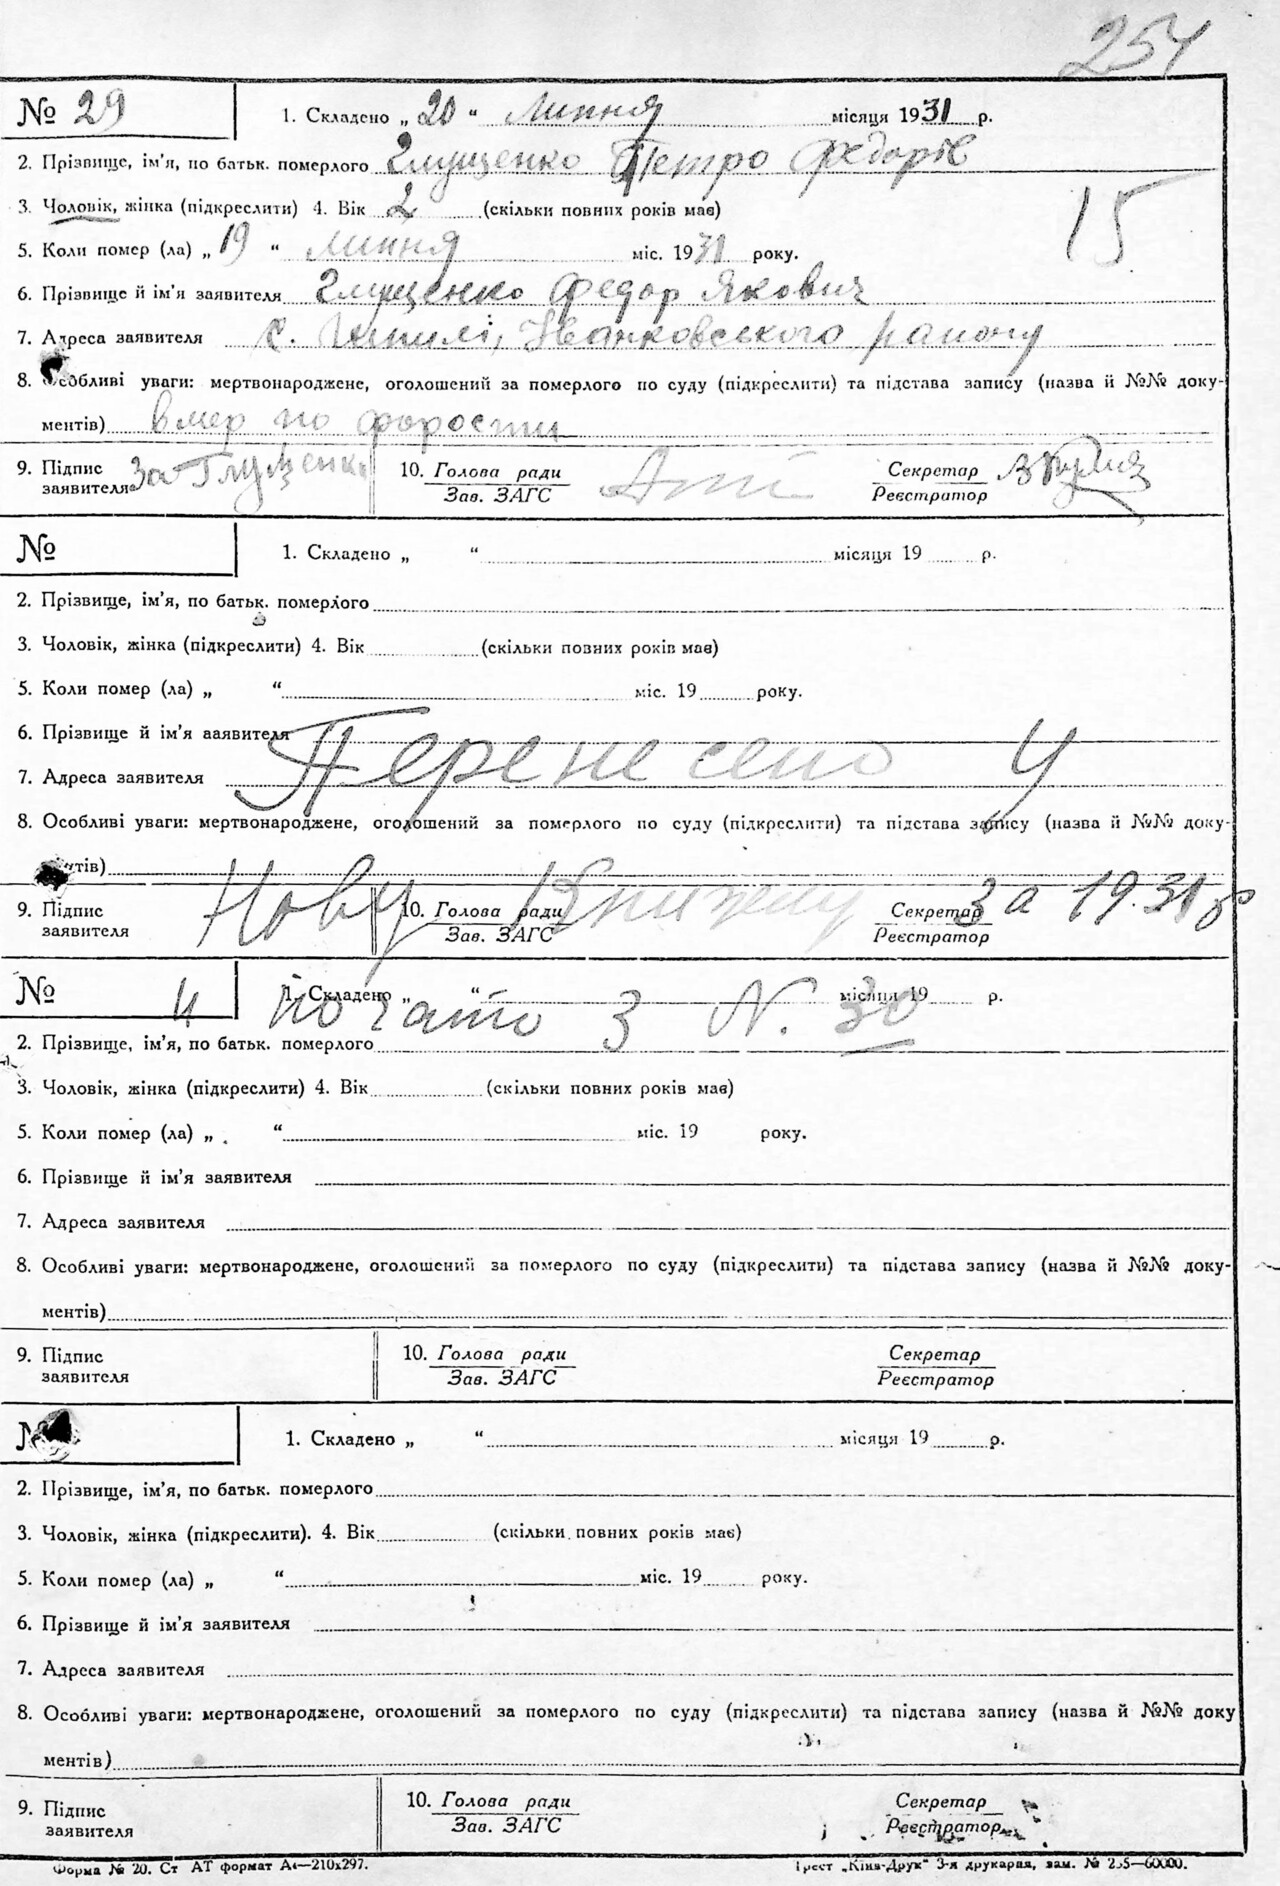 254
№ 29 1. Складено „ 20 “ липня місяця 1931 р.
2. Прізвище, ім'я, по батьк. померлого Глущенко Петро Федорів
3. Чоловік, жінка (підкреслити) 4. Вік 2 (скільки повних років має)
15
5. Коли помер (ла) „ 19 “ липня міс. 1931 року.
6. Прізвище й ім'я заявителя Глущенко Федор Якович
7. Адреса заявителя с. Шпилі, Іванковського району
8. Особливі уваги: мертвонароджене, оголошений за померлого по суду (підкреслити) та підстава запису (назва й №№ доку-
ментів) вмер по форости
9. Підпис заявителя За Глущенка 10. Голова ради Секретар
Зав. ЗАГС Реєстратор
№ 1. Складено „ “ місяця 19 р.
2. Прізвище, ім'я, по батьк. померлого
3. Чоловік, жінка (підкреслити) 4. Вік (скільки повних років має)
5. Коли помер (ла) „ “ міс. 19 року.
6. Прізвище й ім'я заявителя
7. Адреса заявителя Перенесено у
8. Особливі уваги: мертвонароджене, оголошений за померлого по суду (підкреслити) та підстава запису (назва й №№ доку-
нтів)
9. Підпис заявителя 10. Голова ради Секретар
Зав. ЗАГС Реєстратор
Нову Книжку за 19.31 р
№ 1. Складено „ “ місяця 19 р.
и почато з N. 30
2. Прізвище, ім'я, по батьк. померлого
3. Чоловік, жінка (підкреслити) 4. Вік (скільки повних років має)
5. Коли помер (ла) „ “ міс. 19 року.
6. Прізвище й ім'я заявителя
7. Адреса заявителя
8. Особливі уваги: мертвонароджене, оголошений за померлого по суду (підкреслити) та підстава запису (назва й №№ доку-
ментів)
9. Підпис заявителя 10. Голова ради Секретар
Зав. ЗАГС Реєстратор
№ 1. Складено „ “ місяця 19 р.
2. Прізвище, ім'я, по батьк. померлого
3. Чоловік, жінка (підкреслити). 4. Вік (скільки повних років має)
5. Коли помер (ла) „ “ міс. 19 року.
6. Прізвище й ім'я заявителя
7. Адреса заявителя
8. Особливі уваги: мертвонароджене, оголошений за померлого по суду (підкреслити) та підстава запису (назва й №№ доку
ментів)
9. Підпис заявителя 10. Голова ради Секретар
Зав. ЗАГС Реєстратор
Форма № 20. Ст АТ формат А4—210х297. Трест „Київ-Друк“ 3-я друкарня, зам. № 255—60000.